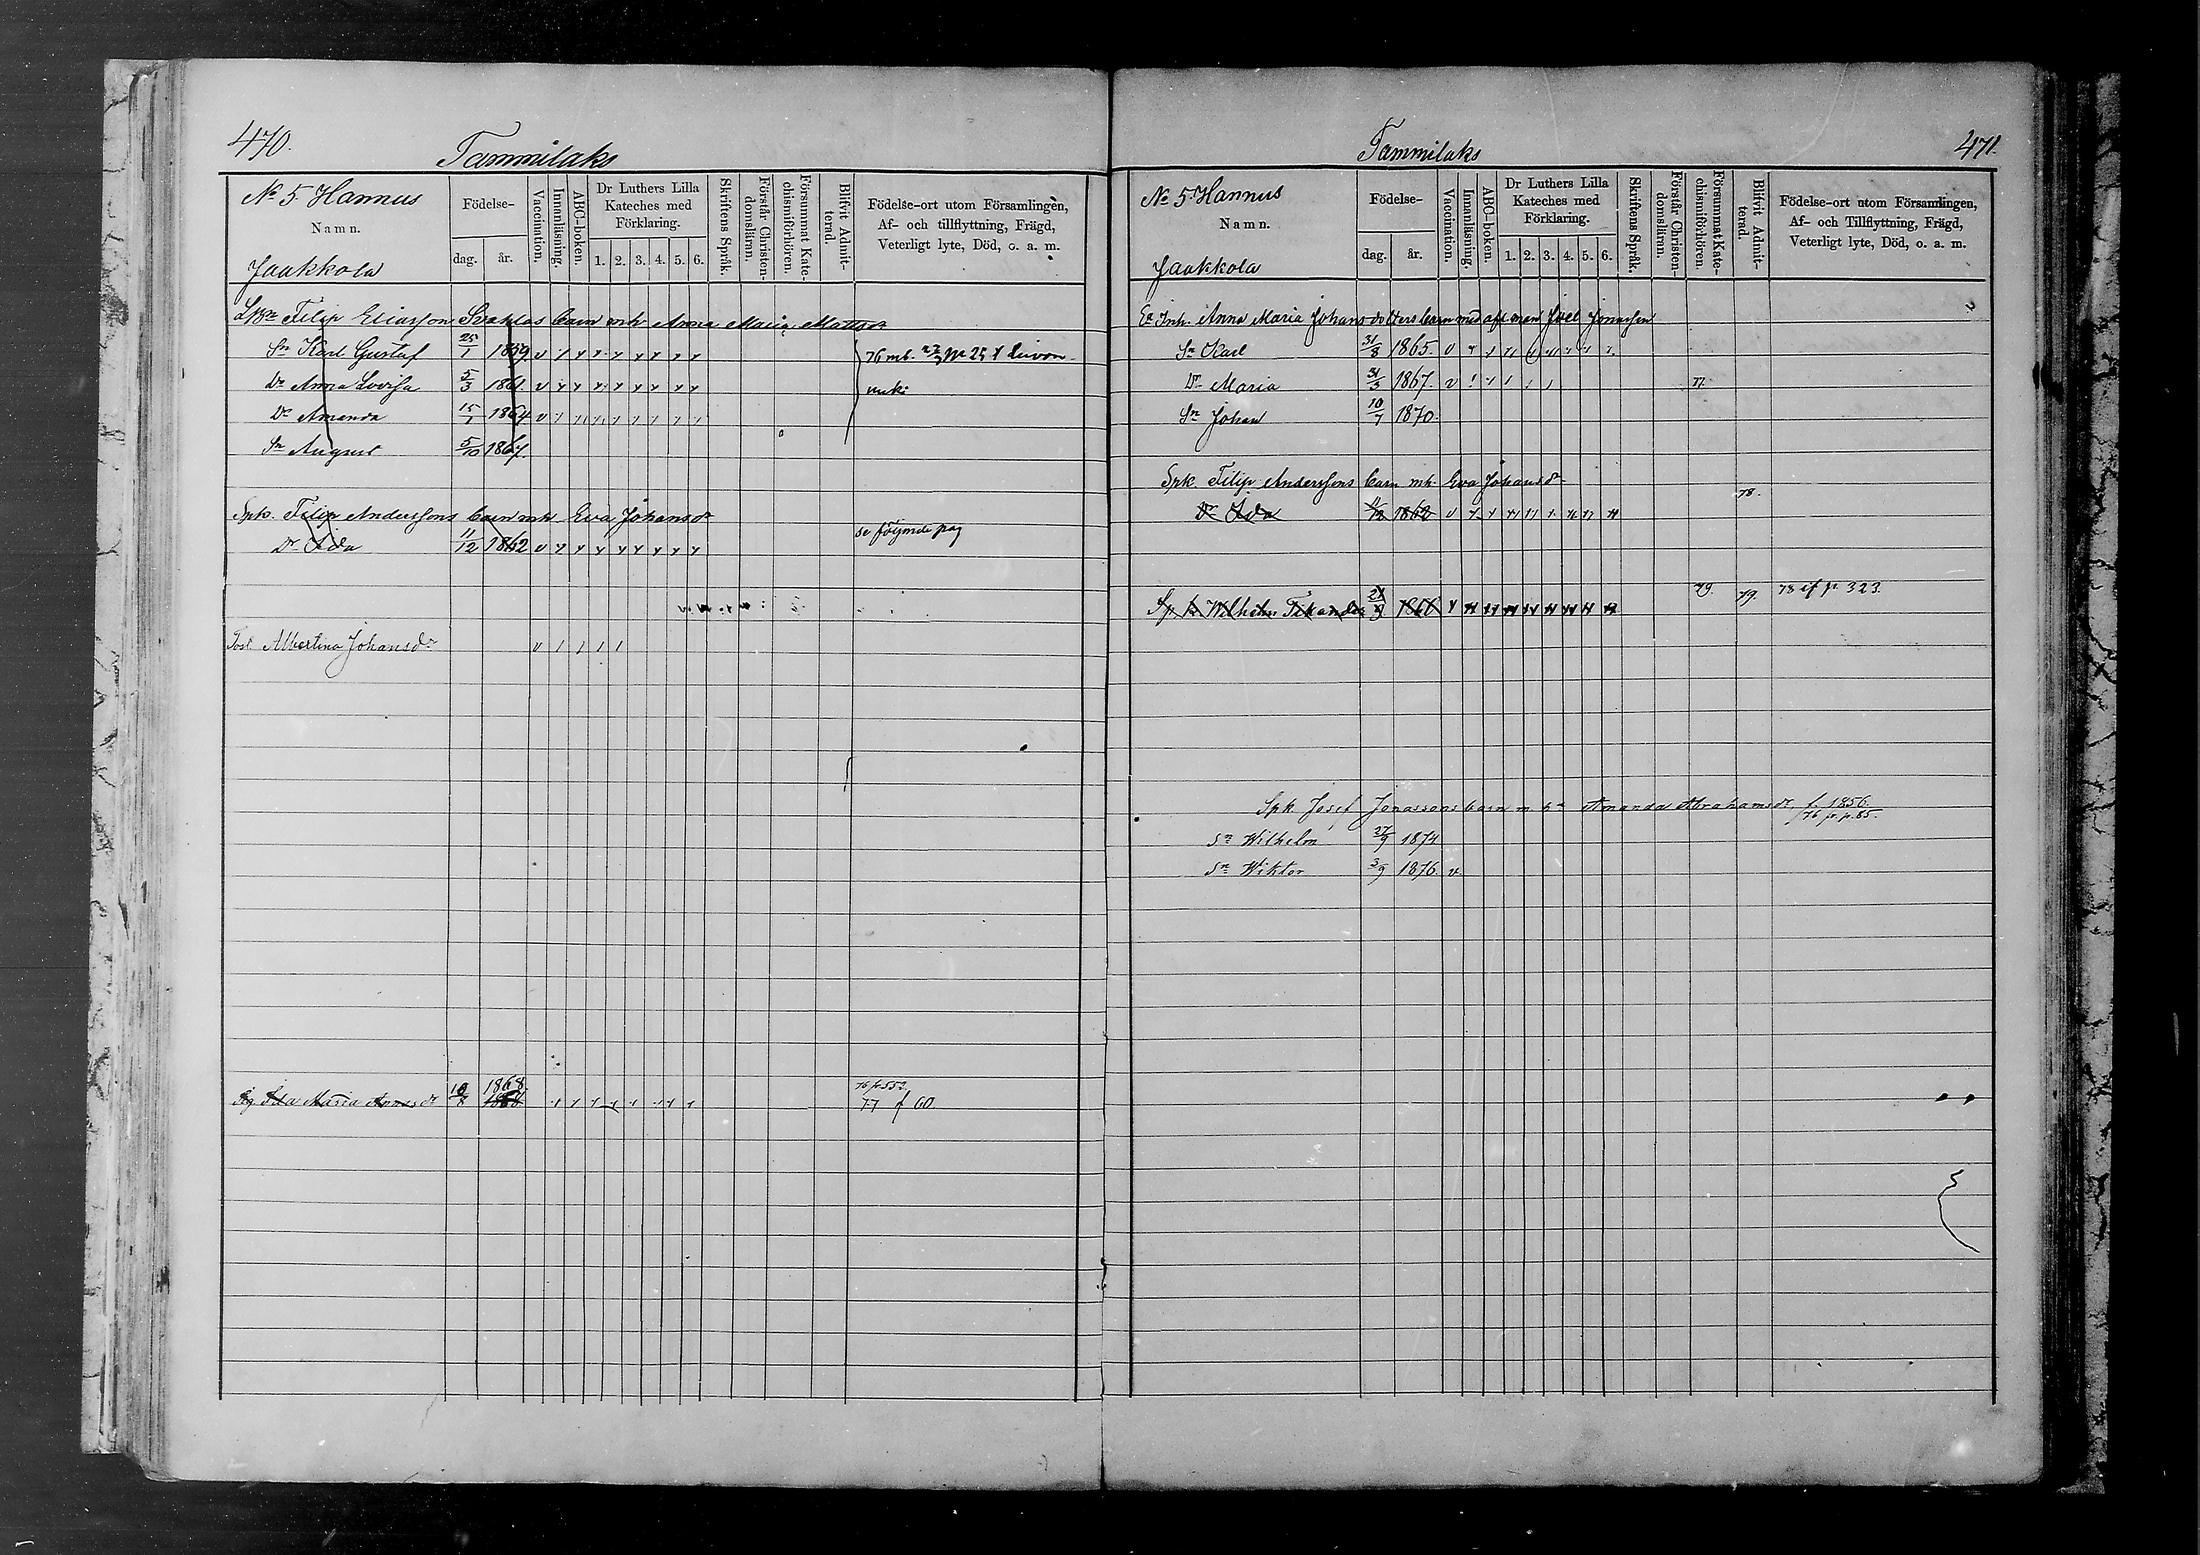 470.
Tammilaks
No 5. Hannus
Namn.
Jaakkola
Födelse-
dag.
år.
Vaccination.
Innanläsning.
ABC-boken.
Dr Luthers Lilla
Kateches med
Förklaring.
1. 2. 3. 4. 5. 6.
Skriftens Språk.
Förstår Christen-
domsläran.
Försummat Kate-
chismiförhören.
Blifvit Admit-
terad.
Födelse-ort utom Församlingen,
Af- och tillflyttning, Frägd,
Veterligt lyte, Död, o. a. m.
Filip Eliasson barn mh Anna Maria Mattsdr
Sn Karl Gustaf 25/1 1859 v
Dr Anna Lovisa 5/3 1861. v
Dr Amanda 15/1 1864 v
Sn August 5/10 1867.
Spk. Filip Anderssons barn mh Eva Johansdr
Dr Ida 11/12 1862 v
se följande pag
Albertina Johansdr v
Ida Maria 10/8 1868
76 fr 552
77 f 60
Tammilaks
471.
No 5. Hannus
Namn.
Jaakkola
Födelse-
dag.
år.
Vaccination.
Innanläsning.
ABC-boken.
Dr Luthers Lilla
Kateches med
Förklaring.
1. 2. 3. 4. 5. 6.
Skriftens Språk.
Förstår Christen-
domsläran.
Försummat Kate-
chismiförhören.
Blifvit Admit-
terad.
Födelse-ort utom Församlingen,
Af- och Tillflyttning, Frägd,
Veterligt lyte, Död, o. a. m.
Anna Maria Johansdotters barn med afl. man Joel Jonasson
Sn Karl 31/8 1865. v
Dr Maria 31/3 1867. v 77.
Sn Johan 10/7 1870.
Spk. Filip Anderssons barn mh. Eva Johansdr
Dr Ida 11/12 1862 v 78.
Wilhelm 79. 79. 78 cf p. 323.
Spk Josef Jonassons barn m h Amanda Abrahamsdr f. 1856
76 fr. p. 85.
Sn Wilhelm 27/9 1874
Sn Wiktor 3/9 1876 v